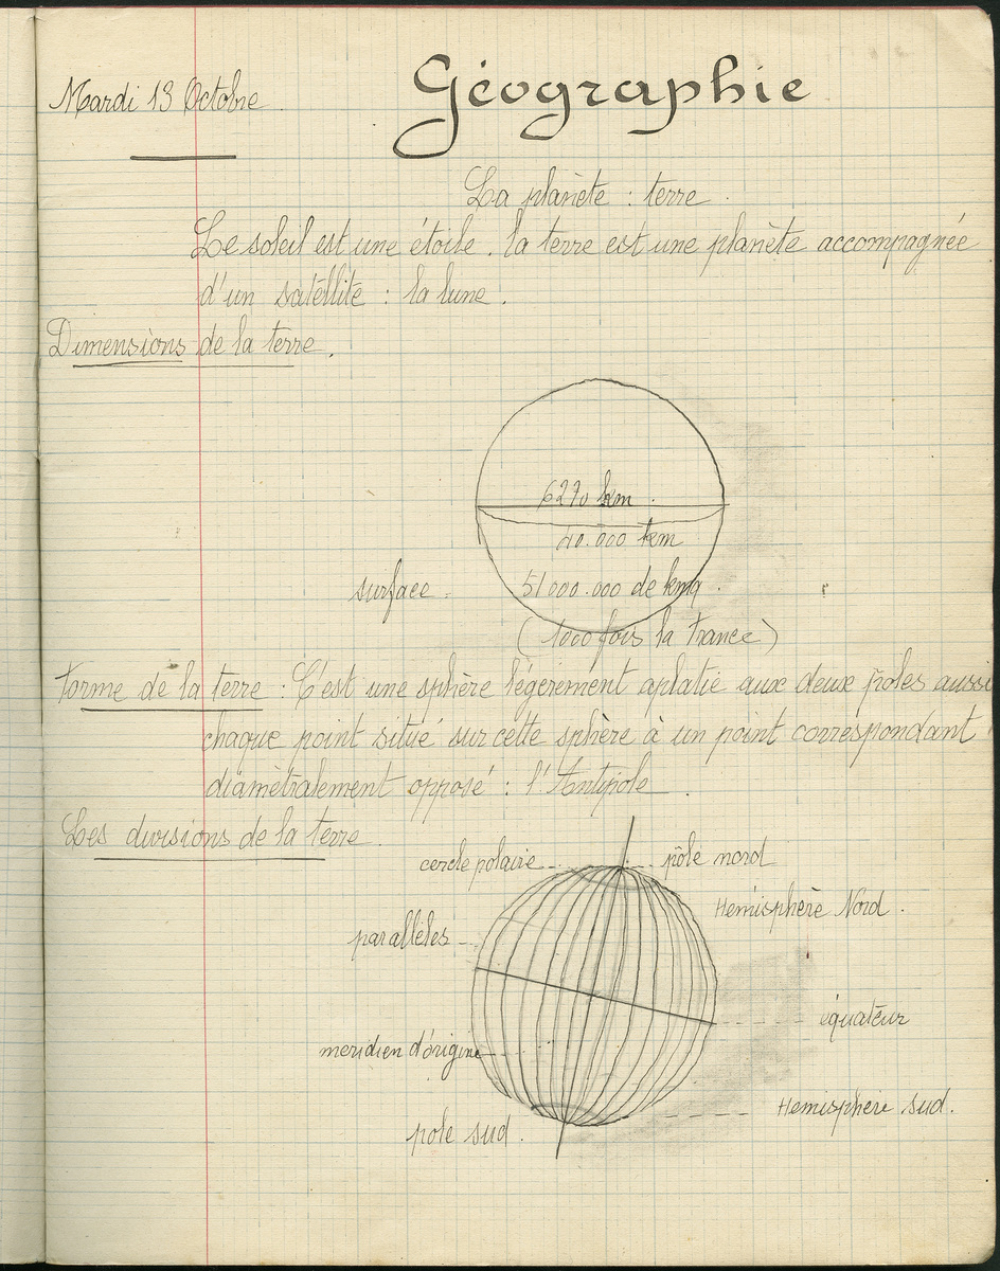 Mardi 13 Octobre
Géographie
La planète : terre.
Le soleil est une étoile. la terre est une planète accompagnée
d'un satéllite : la lune.
Dimensions de la terre.
6270 km.
40.000 km
surface. 51000.000 de kmq.
(1000 fois la France)
Forme de la terre : C'est une sphère légèrement aplatie aux deux pôles aussi
chaque point situé sur cette sphère à un point correspondant
diamètralement opposé : l'Antipole.
Les divisions de la terre.
cercle polaire
pôle nord
Hemisphère Nord.
parallèles
équateur
meridien d'origine
Hemisphère sud.
pole sud.